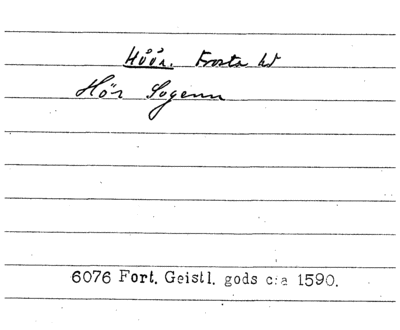 Höör. Frosta hd
Hör Sogenn
6076 Fort. Geistl. gods c:a 1590.